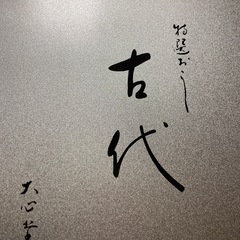 特選おこし
古代
大心堂